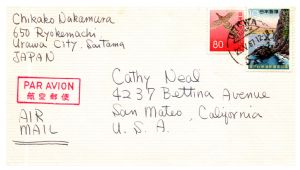 Chikako Nakamura
650 Ryokemachi
Urawa City, Saitama
JAPAN
80
PAR AVION
航空郵便
AIR
MAIL
Cathy Neal
4237 Bettina Avenue
San Mateo, California
U. S. A.